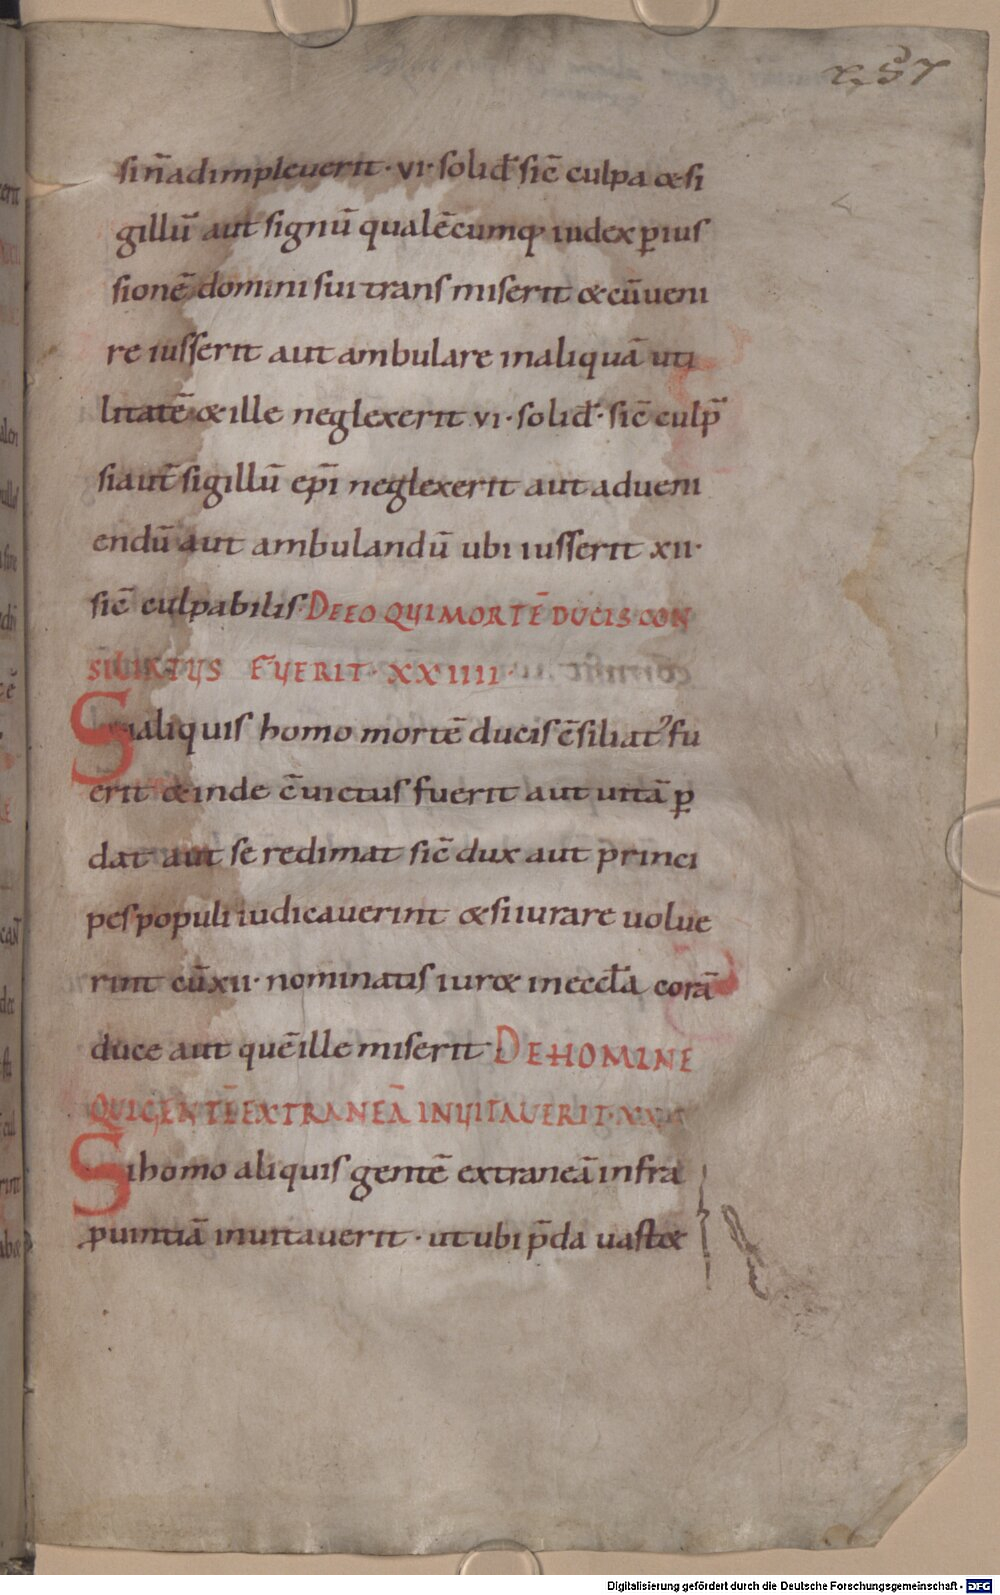 x 57
sin̄ adimpleuerit · vi · solid̄ sic̄ culpa & si
gillū aut signū qualēcumq; iudex p̱ ius
sionē domini sui transmiserit & cū ueni
re iusserit aut ambulare in aliquā uti
litatē & ille neglexerit vi · solid̄ · sic̄ culp̄
si aut̄ sigillū ep̄i neglexerit aut ad ueni
endū aut ambulandū ubi iusserit xii ·
sic̄ culpabilis · DE EO QUI MORTĒ DUCIS CON
SILIATUS FUERIT · XXIIII ·
Si aliquis homo mortē ducis c̄siliat᾽ fu
erit & inde c̄uictus fuerit aut uitā p̱
dat aut se redimat sic̄ dux aut princi
pes populi iudicauerint & si iurare uolue
rint cū xii · nominatis iur& in eccl̄a corā
duce aut quē ille miserit · DE HOMINE
QUI GENTĒ EXTRANEĀ INUITAUERIT ·
Si homo aliquis gentē extraneā infra
ꝓuintiā inuitauerit · ut ubi p̄da uast&
Digitalisierung gefördert durch die Deutsche Forschungsgemeinschaft - DFG